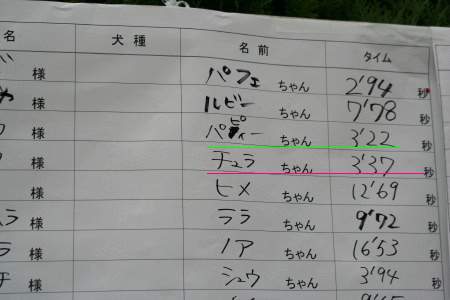 名 犬種 名前 タイム
様 パフェ ちゃん 2'94 秒
様 ルビー ちゃん 7'78 秒
様 パピィー ちゃん 3'22 秒
様 チュラ ちゃん 3'37 秒
様 ヒメ ちゃん 12'69 秒
様 ララ ちゃん 9'72 秒
ラ 様 ノア ちゃん 16'53 秒
様 シュウ ちゃん 3'94 秒